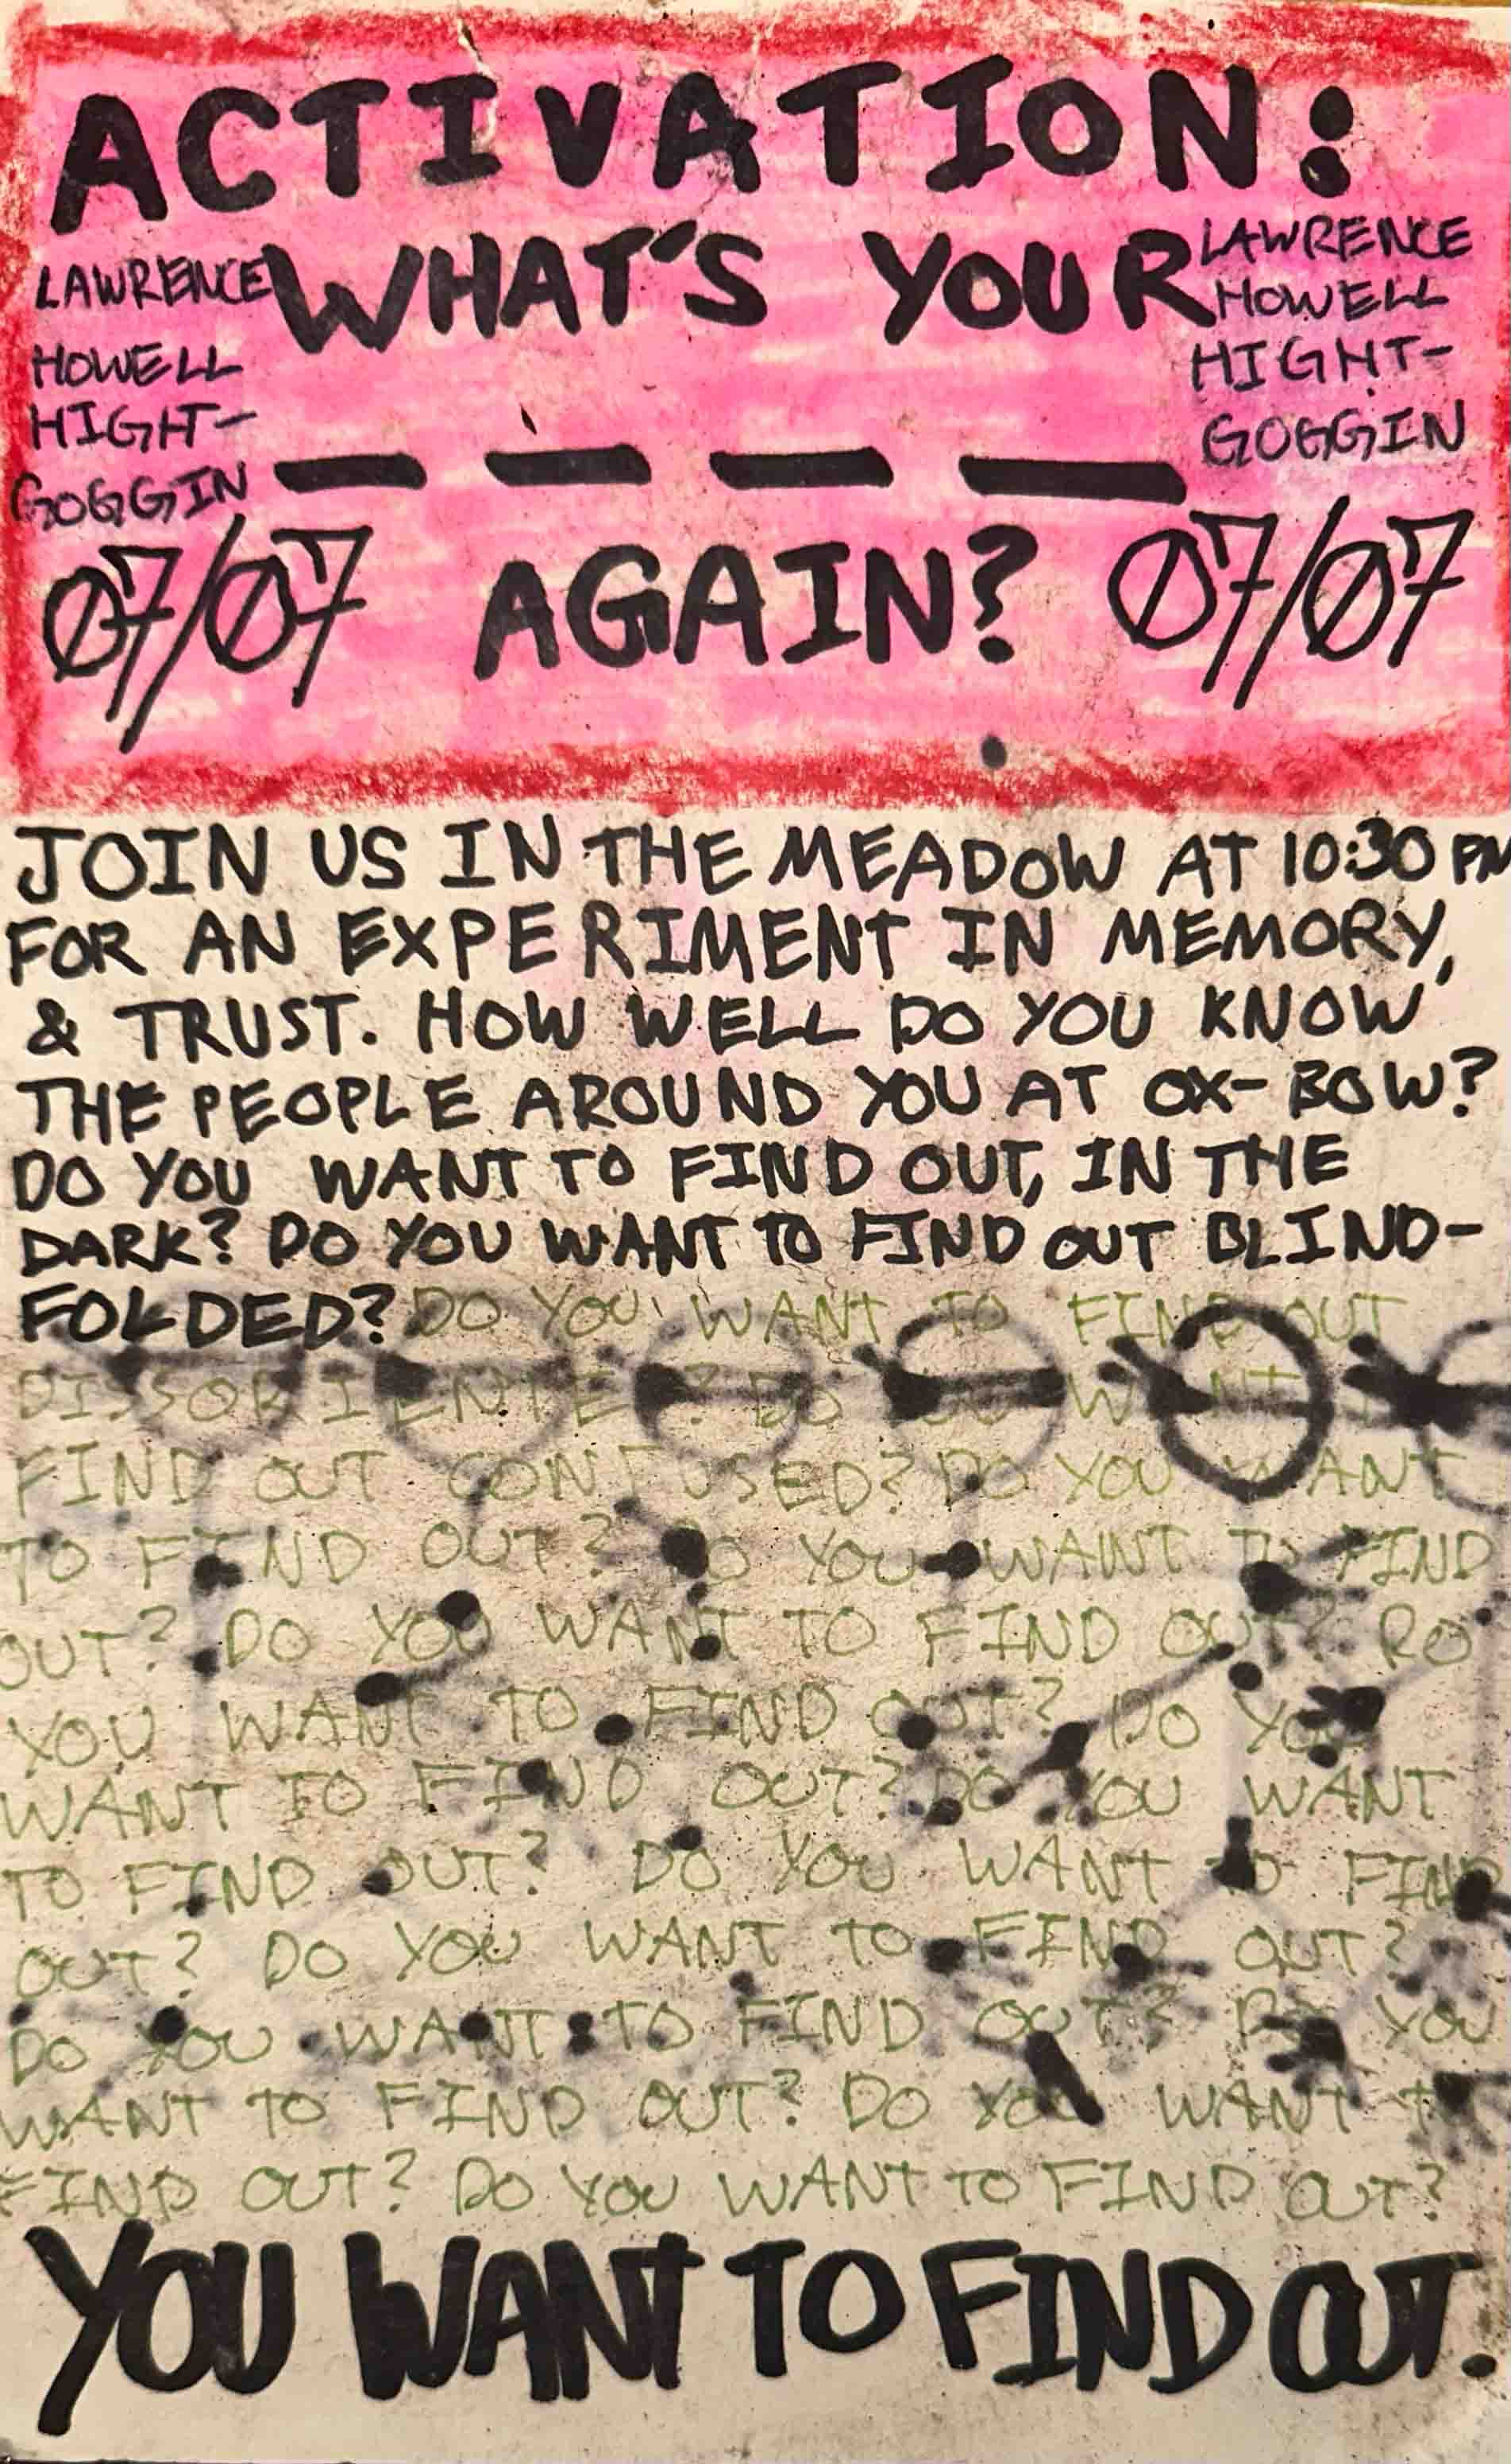 ACTIVATION:
WHAT'S YOUR
LAWRENCE
HOWELL
HIGHT-
GOGGIN
LAWRENCE
HOWELL
HIGHT-
GOGGIN
_ _ _ _
07/07 AGAIN? 07/07
JOIN US IN THE MEADOW AT 10:30 PM
FOR AN EXPERIMENT IN MEMORY,
& TRUST. HOW WELL DO YOU KNOW
THE PEOPLE AROUND YOU AT OX-BOW?
DO YOU WANT TO FIND OUT, IN THE
DARK? DO YOU WANT TO FIND OUT BLIND-
FOLDED? DO YOU WANT TO FIND OUT
DISSORIENTED? DO YOU WANT TO
FIND OUT CONFUSED? DO YOU WANT
TO FIND OUT? DO YOU WANT TO FIND
OUT? DO YOU WANT TO FIND OUT? DO
YOU WANT TO FIND OUT? DO YOU
WANT TO FIND OUT? DO YOU WANT
TO FIND OUT? DO YOU WANT TO FIND
OUT? DO YOU WANT TO FIND OUT?
DO YOU WANT TO FIND OUT? DO YOU
WANT TO FIND OUT? DO YOU WANT TO
FIND OUT? DO YOU WANT TO FIND OUT?
YOU WANT TO FIND OUT.